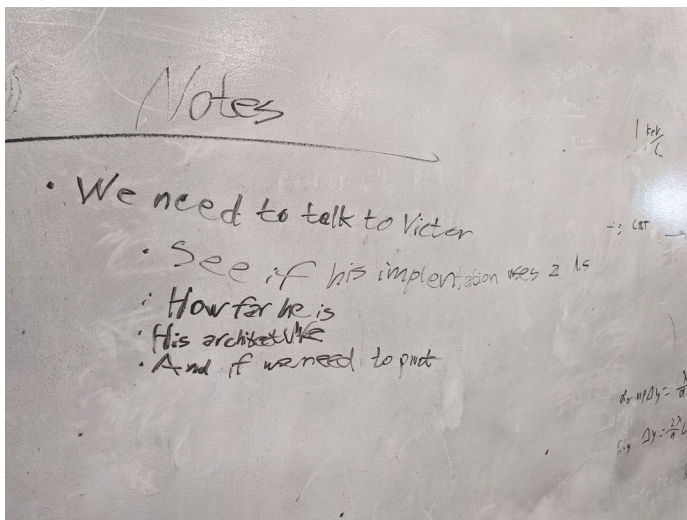 Notes
• We need to talk to Victor
• See if his implemtation uses 2 ls
• How far he is
• His architecture
• And if we need to pivot
CRT
Δy =
Δy = 2λ